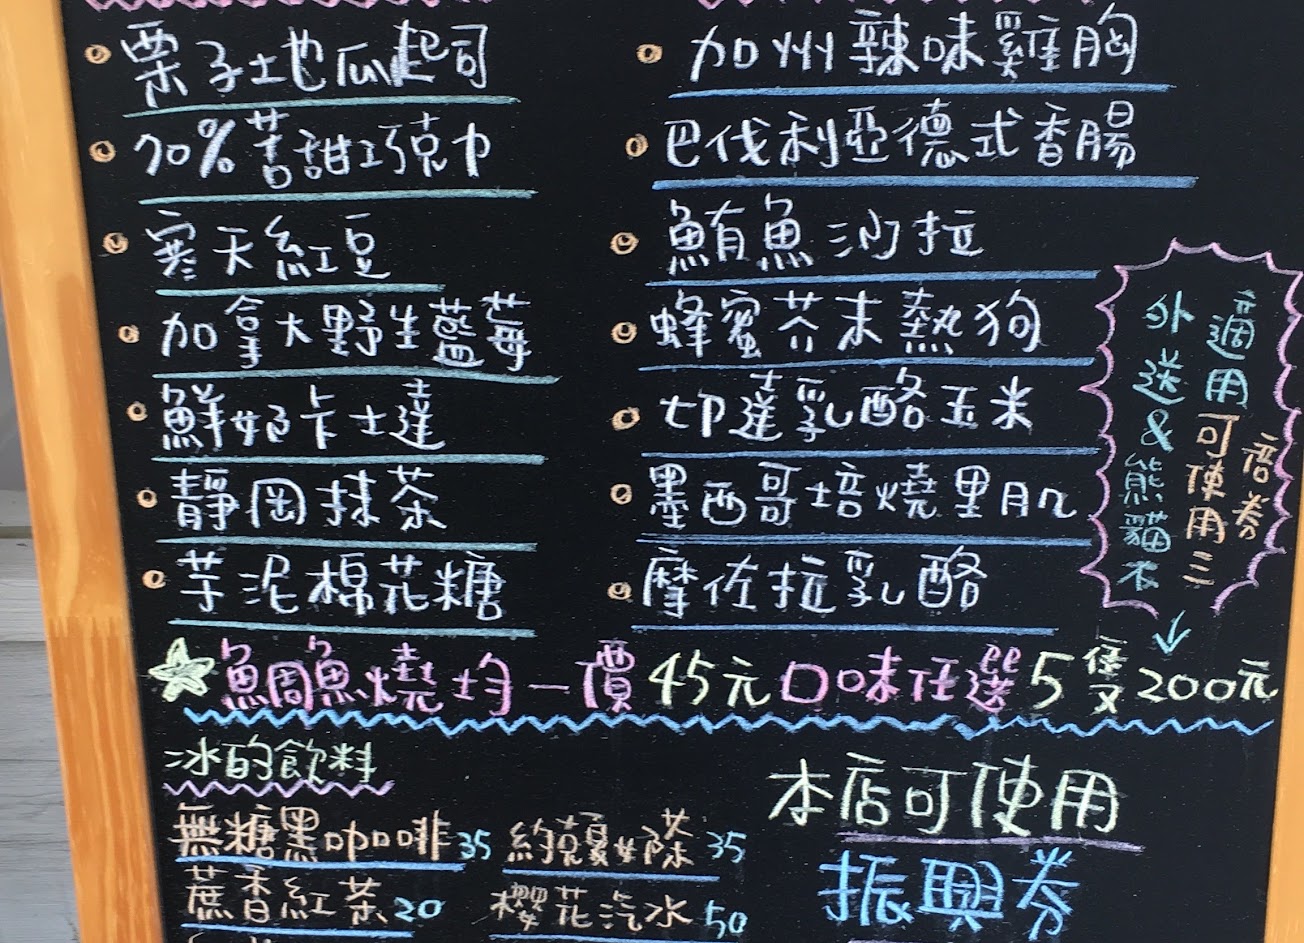 栗子土地瓜起司
70%苦甜巧克力
寒天紅豆
加拿大野生藍莓
鮮奶卡士達
靜岡抹茶
芋泥棉花糖
加州辣味雞胸
巴伐利亞德式香腸
鮪魚沙拉
蜂蜜芥末熱狗
切達乳酪玉米
墨西哥培燒里肌
摩佐拉乳酪
適用
外送&熊貓
可使用三
倍券
鯛魚燒均一價45元口味任選5隻200元
冰的飲料
無糖黑咖啡35
蔗香紅茶20
約克夏奶茶35
櫻花汽水50
本店可使用
振興券